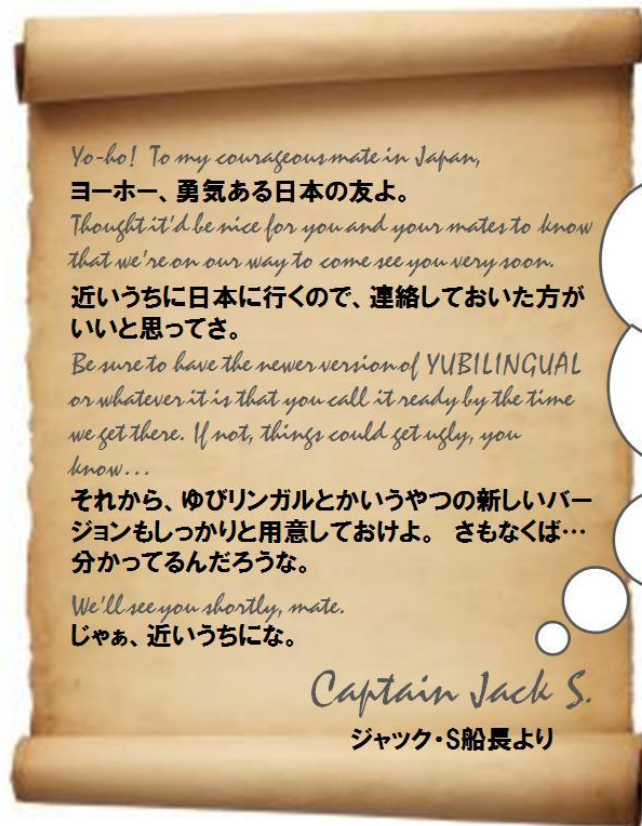 Yo-ho! To my courageous mate in Japan,
ヨーホー、勇気ある日本の友よ。
Thought it'd be nice for you and your mates to know
that we're on our way to come see you very soon.
近いうちに日本に行くので、連絡しておいた方が
いいと思ってさ。
Be sure to have the newer version of YUBILINGUAL
or whatever it is that you call it ready by the time
we get there. If not, things could get ugly, you
know...
それから、ゆびリンガルとかいうやつの新しいバー
ジョンもしっかりと用意しておけよ。 さもなくば…
分かってるんだろうな。
We'll see you shortly, mate.
じゃぁ、近いうちにな。
Captain Jack S.
ジャック・S船長より